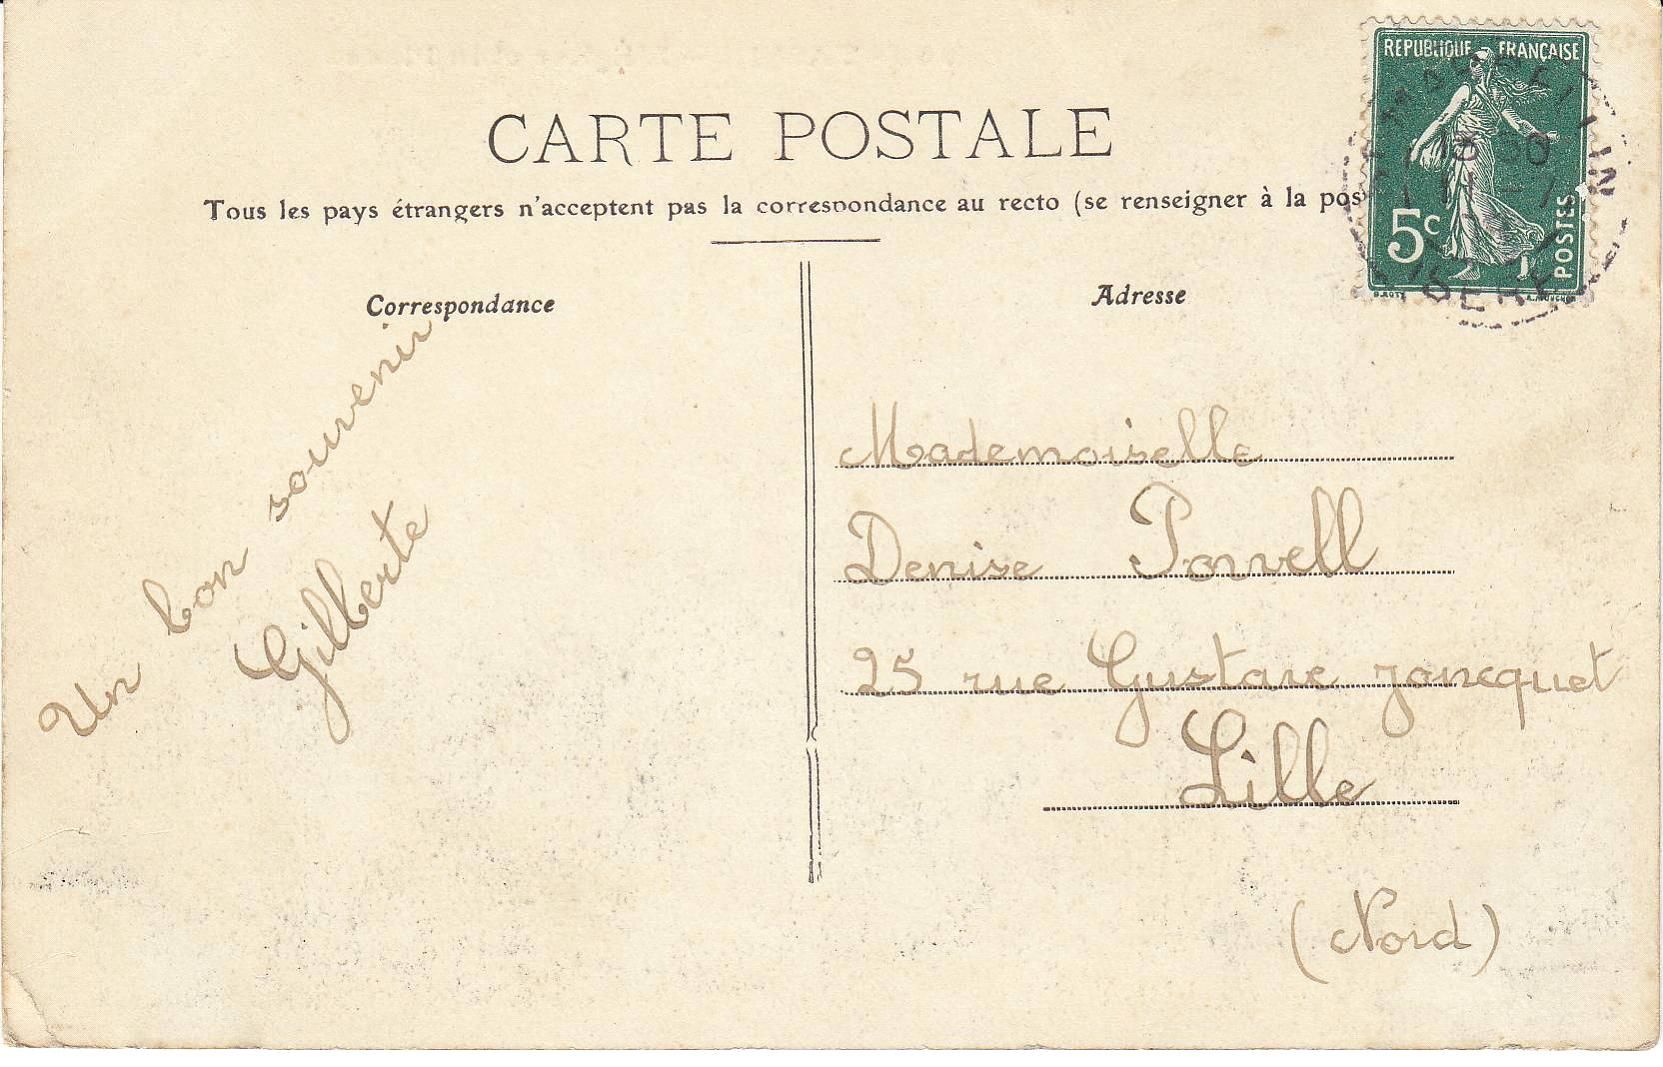 REPUBLIQUE FRANÇAISE
CARTE POSTALE
Tous les pays étrangers n'acceptent pas la correspondance au recto (se renseigner à la pos
5c
POSTES
ISERE
Correspondance
Adresse
Un bon souvenir
Gilberte
Mademoiselle
Denise Powell
25 rue Gustave Joncquet
Lille
(Nord)